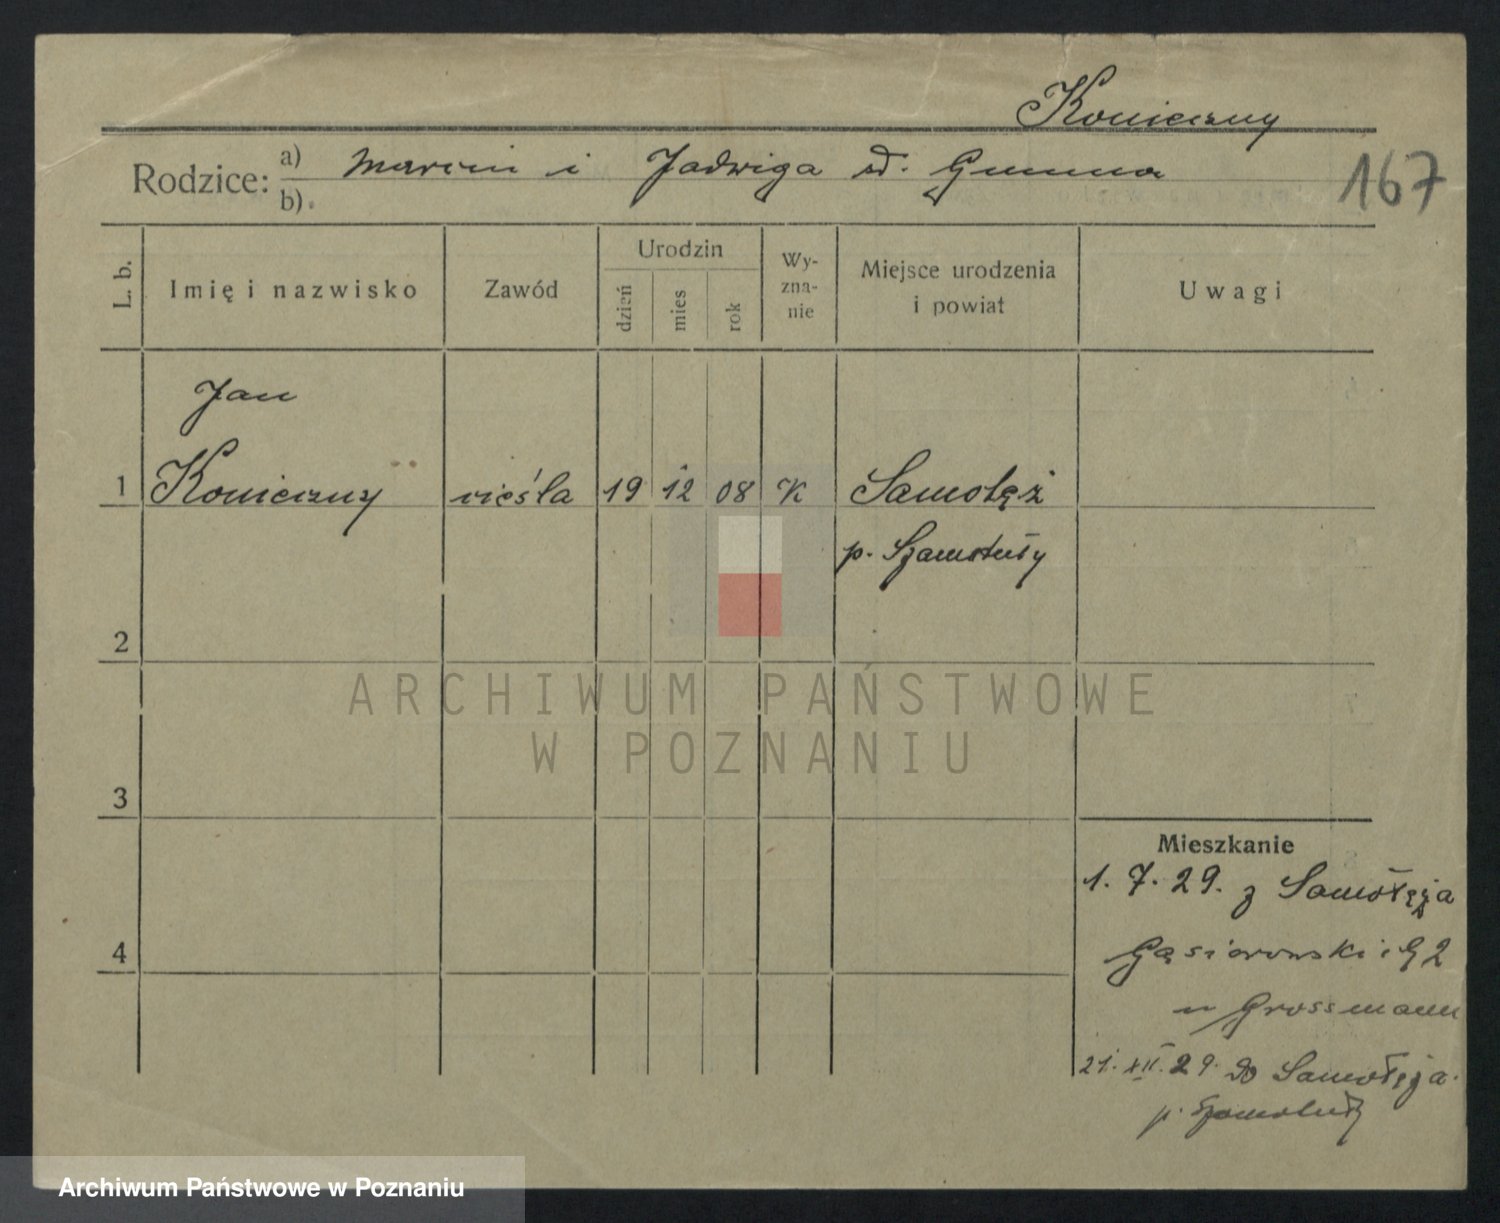 Konieczny
Rodzice: a) Marcin i Jadwiga zd. Gumna
b)
167
L. b.
Imię i nazwisko
Zawód
Urodzin
dzień
mies
rok
Wy-
zna-
nie
Miejsce urodzenia
i powiat
Uwagi
Jan
1 Konieczny cieśla 19 12 08 K Samołęż
p. Szamotuły
2
ARCHIWUM PAŃSTWOWE
W POZNANIU
3
Mieszkanie
1. 7. 29. z Samołęża
4
Gąsiorowskich 2
u Grossmann
21. XII. 29. do Samołęża.
p. Szamotuły
Archiwum Państwowe w Poznaniu